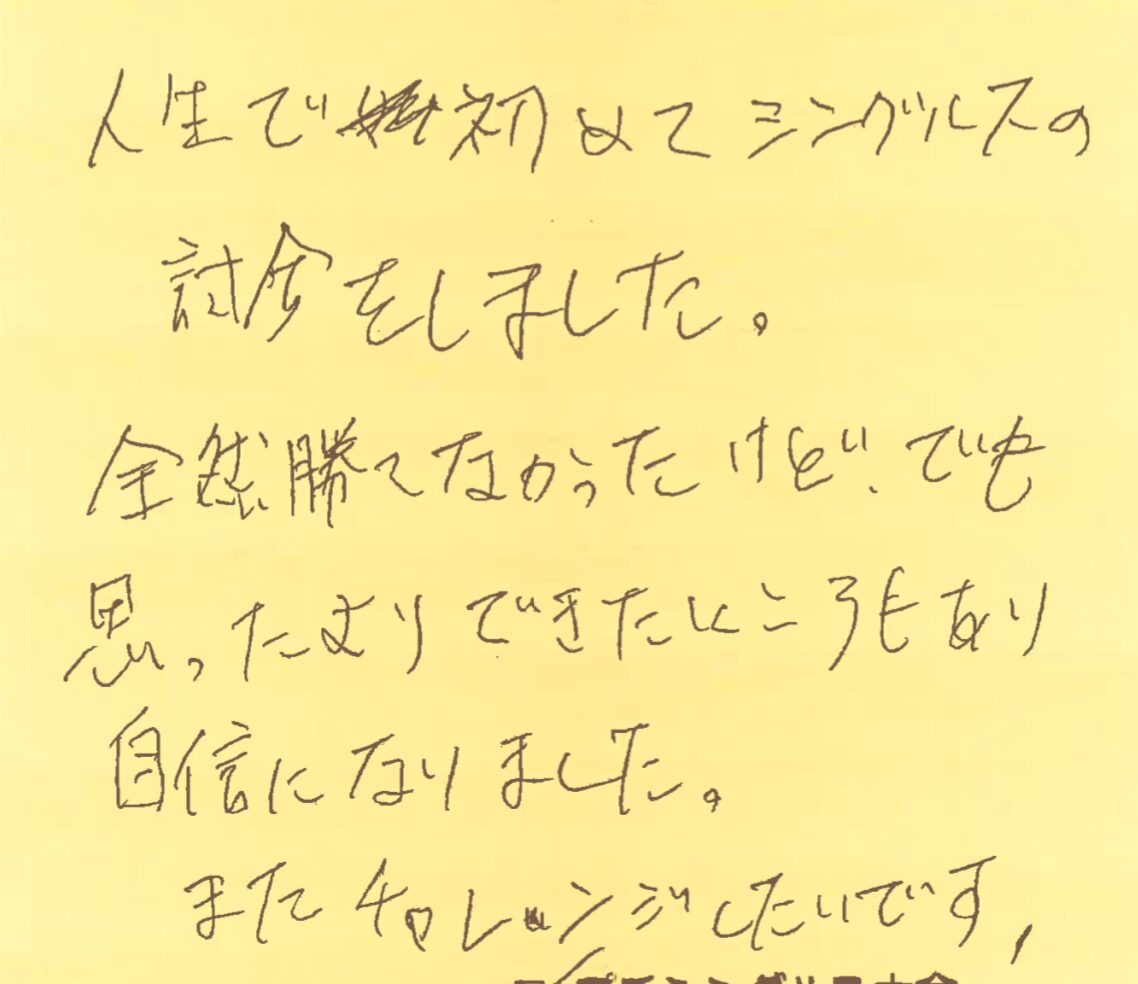 人生で初めてシングルスの
試合をしました。
全然勝てなかったけど、でも
思ったよりできたところもあり
自信になりました。
またチャレンジしたいです,